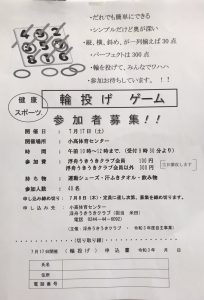 ・だれでも簡単にできる
・シンプルだけど奥が深い
・縦、横、斜め、が一列揃えば 30 点
・パーフェクトは 300 点
・輪を投げて、みんなでワハハ
・参加お待ちしています。！！
健康
スポーツ
輪投げ ゲーム
参加者募集！！
開催日 ： 7月17日（土）
開催場所 ： 小高体育センター
時間 ： 午前10時～12時まで、（受付9時30分より）
参加費 ： 浮舟うきうきクラブ会員 100円
浮舟うきうきクラブ会員以外 300円
当日徴収します
持ち物 ： 運動シューズ・汗ふきタオル・飲み物
参加人数 ： 40名
申し込み締め切り ： 7月8日（木）・定員に達し次第、募集を締め切ります。
申し込み先 ： 小高体育センター
浮舟うきうきクラブ（担当
電話 0244-44-6092）
（主催：浮舟うきうきクラブ 令和3年度自主事業）
（切り取り線）
7月17日開催 （輪投げ） 申込書 令和3年 月 日
氏名
住所
電話番号